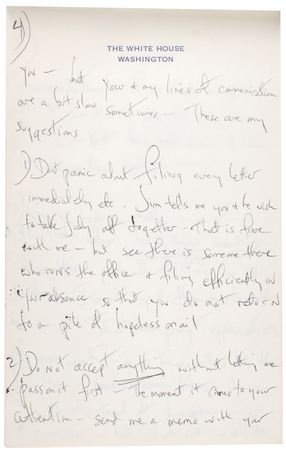 4)
THE WHITE HOUSE
WASHINGTON
you — but your & my lines of communication
are a bit slow sometimes — These are my
suggestions
1) Don't panic about filing every letter
immediately etc. Jim tells me you & he wish
to take July off together. That is fine
with me — but see there is someone there
who runs the office & filing efficiently in
your absence so that you do not return
to a pile of hopeless mail
2) Do not accept anything without letting me
pass on it first — The moment it comes to your
attention — send me a memo with your